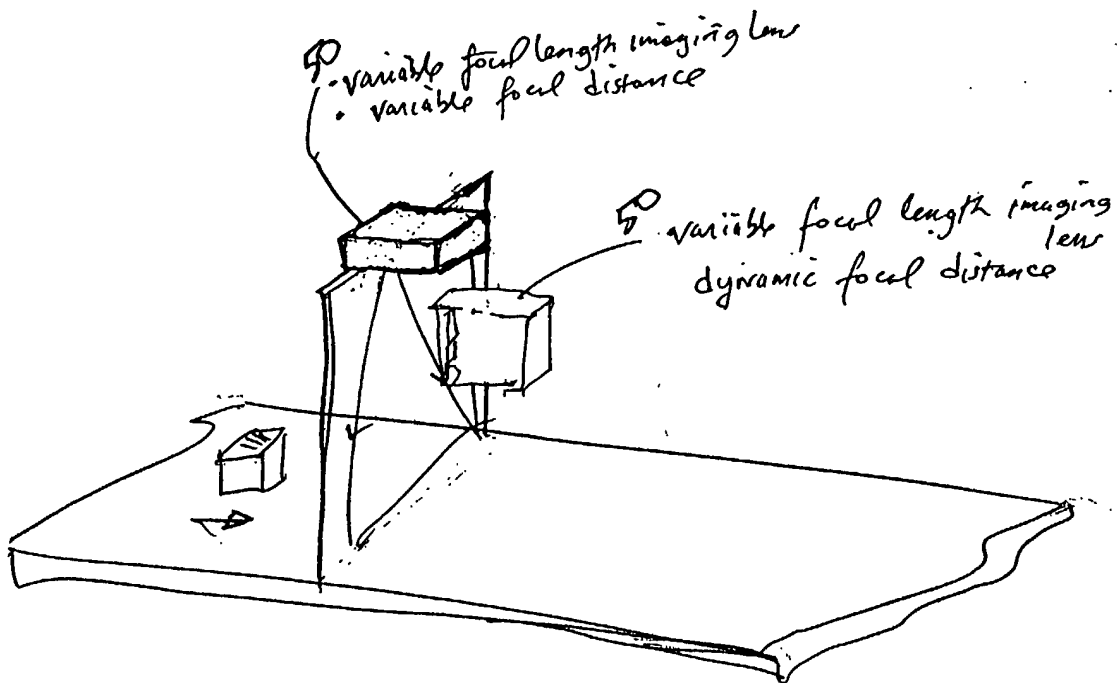 50
· variable focal length imaging lens
· variable focal distance
50 variable focal length imaging
lens
dynamic focal distance